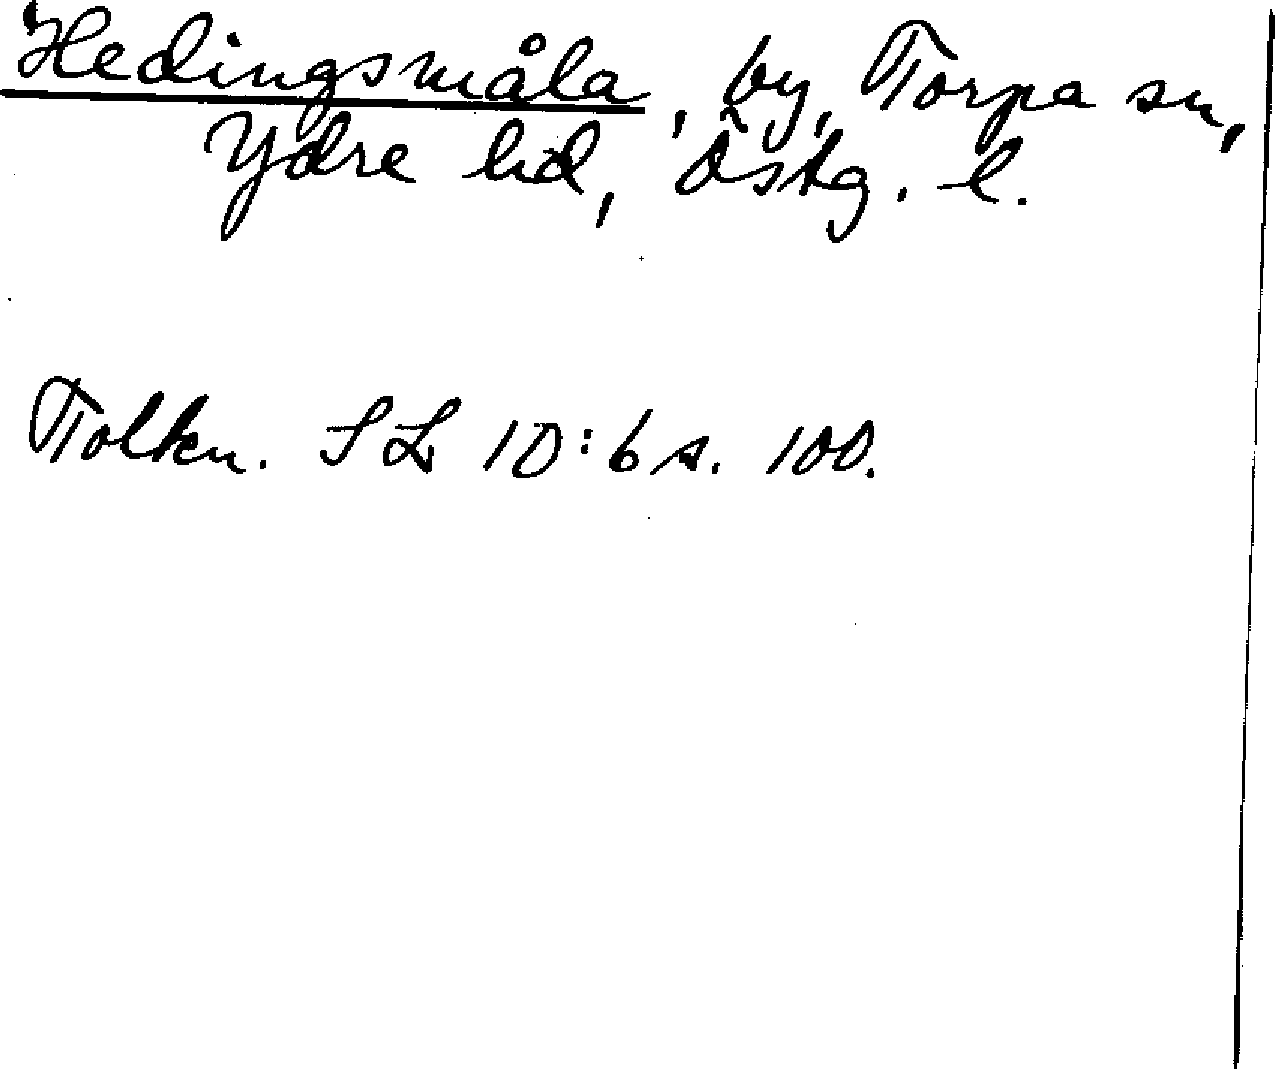 Hedingsmåla, by, Torpa sn,
Ydre hd, Östg. l.
Tolkn. SL 10:6 s. 100.